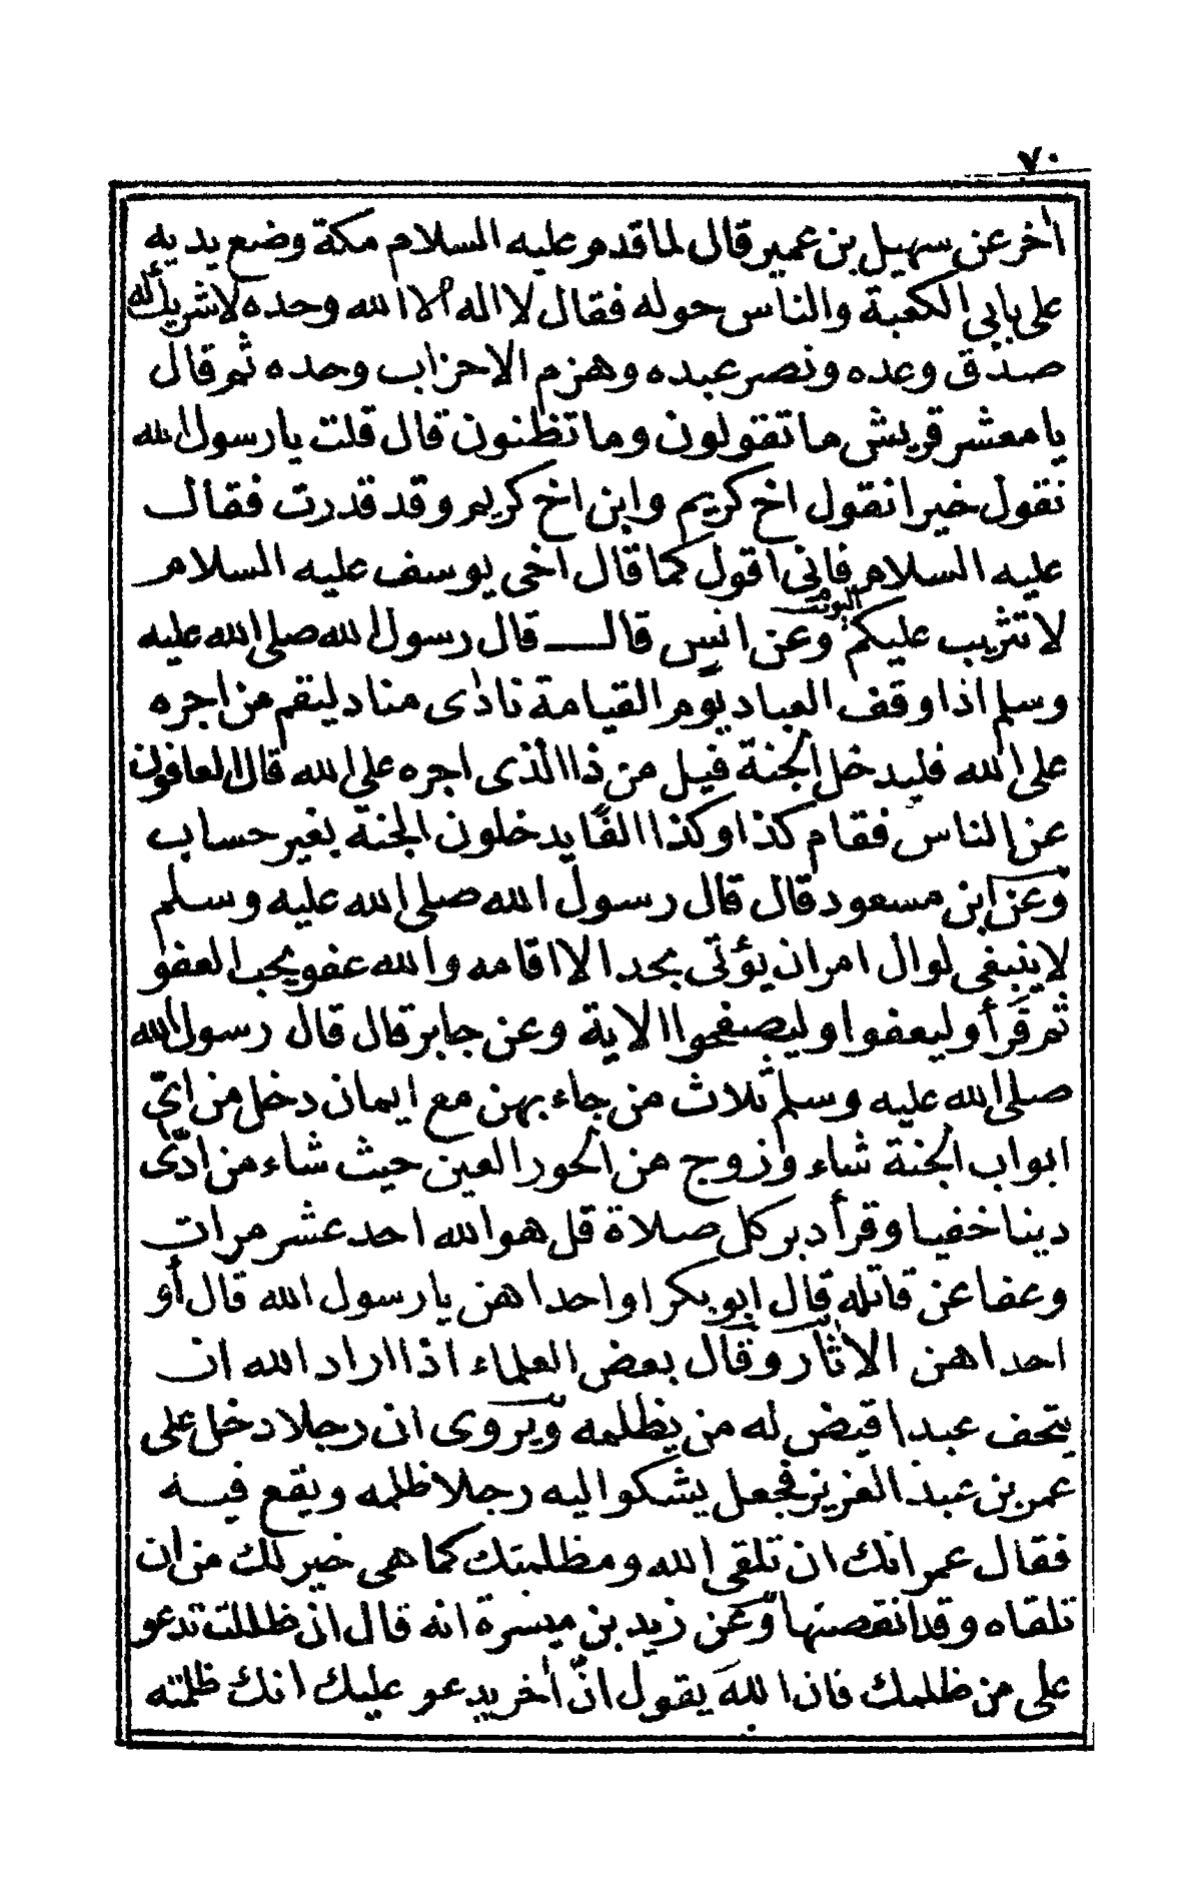 ٧٠
أخر عن سهيل بن عمير قال لما قدم عليه السلام مكة وضع يديه
على بابي الكعبة والناس حوله فقال لا اله الا الله وحده لا شريك له
صدق وعده ونصر عبده وهزم الاحزاب وحده ثم قال
يا معشر قريش ما تقولون وما تظنون قال قلت يا رسول الله
نقول خيرا نقول اخ كريم وابن اخ كريم وقد قدرت فقال
عليه السلام فاني اقول كما قال اخى يوسف عليه السلام
لا تثريب عليكم اليوم وعن انس قال قال رسول الله صلى الله عليه
وسلم اذا وقف العباد يوم القيامة نادى مناد ليقم من اجره
على الله فليدخل الجنة قيل من ذا الذى اجره على الله قال العافون
عن الناس فقام كذا وكذا الفا يدخلون الجنة بغير حساب
وعن ابن مسعود قال قال رسول الله صلى الله عليه وسلم
لا ينبغى لوال امر ان يؤتى بحد الا اقامه والله عفو يحب العفو
ثم قرأ وليعفوا وليصفحوا الاية وعن جابر قال قال رسول الله
صلى الله عليه وسلم ثلاث من جاء بهن مع ايمان دخل من اتي
ابواب الجنة شاء وزوج من الحور العين حيث شاء من ادّى
دينا خفيا وقرأ دبر كل صلاة قل هو الله احد عشر مرات
وعفا عن قاتله قال ابو بكر او احداهن يا رسول الله قال أو
احداهن الاثار وقال بعض العلماء اذا اراد الله ان
يتحف عبدا قيض له من يظلمه ويروى ان رجلا دخل على
عمر بن عبد العزيز فجعل يشكو اليه رجلا ظلمه ويقع فيه
فقال عمر انك ان تلقى الله ومظلمتك كما هى خير لك من ان
تلقاه وقد انقصتها وعن زيد بن ميسرة انه قال ان ظللت تدعو
على من ظلمك فان الله يقول انّ أخر يدعو عليك انك ظلمته